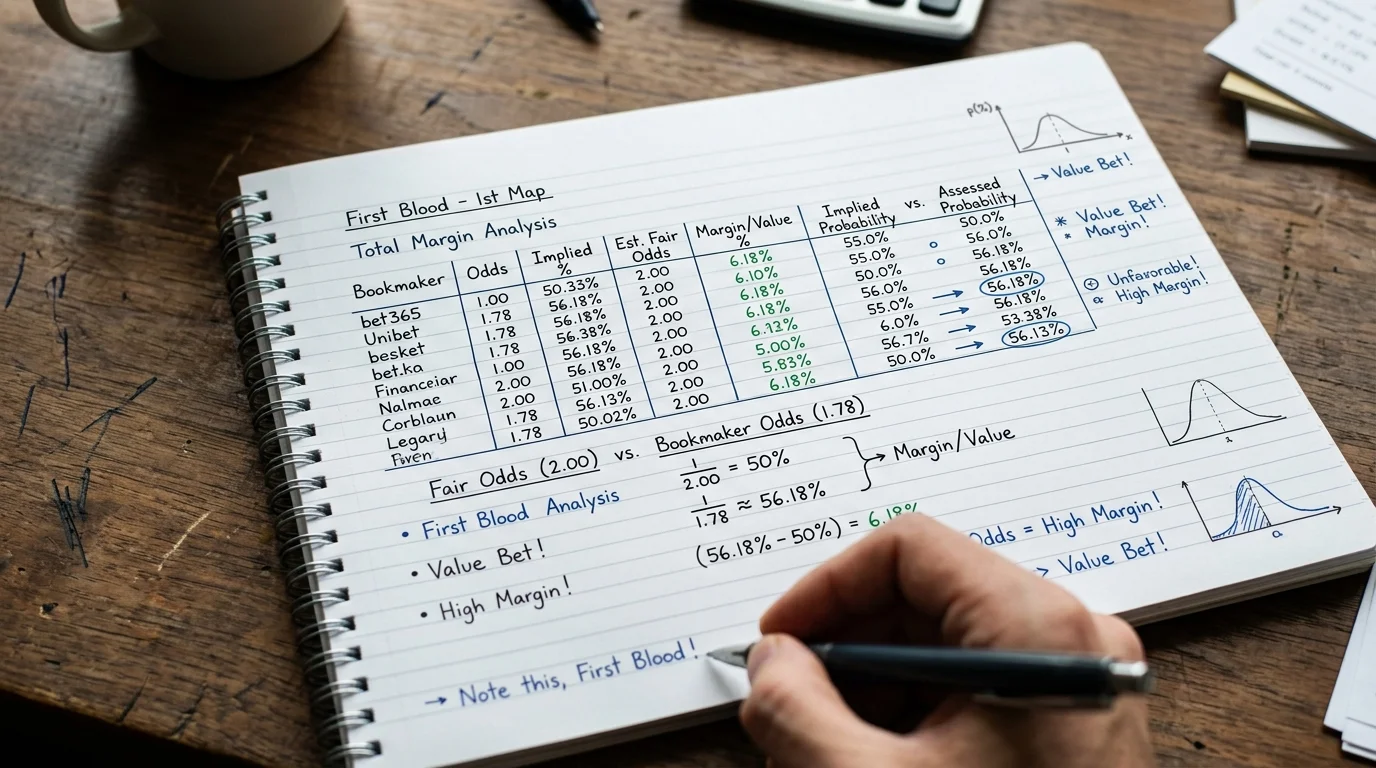 p(%)
x
→ Value Bet!
* Value Bet!
* Margin!
⊕ Unfavorable!
High Margin!
First Blood - 1st Map
Total Margin Analysis
Bookmaker Odds Implied % Est. Fair Odds Margin/Value % Implied Probability vs. Assessed Probability
bet365 1.00 50.33% 2.00 6.18% 55.0% 50.0%
Unibet 1.78 56.18% 2.00 6.10% 55.0% 56.0%
besket 1.78 56.18% 2.00 6.18% 50.0% 56.18%
bet.ka 1.78 56.38% 2.00 6.18% 56.0% 56.18%
Financeiar 1.00 56.18% 2.00 55.0% → 56.18%
Nalmae 2.00 56.18% 2.00 5.00% 6.0% → 56.18%
Corblaun 2.00 51.00% 2.00 5.83% 56.7% → 53.38%
Legarj 1.78 56.13% 2.00 6.18% 50.0% → 56.13%
1.78 50.02%
Fair Odds (2.00) vs. Bookmaker Odds (1.78)
• First Blood Analysis
• Value Bet!
• High Margin!
1/2.00 = 50%
1/1.78 ≈ 56.18%
→ Margin/Value
(56.18% - 50%) = 6.18%
Odds = High Margin!
> Value Bet!
→ Note this, First Blood!